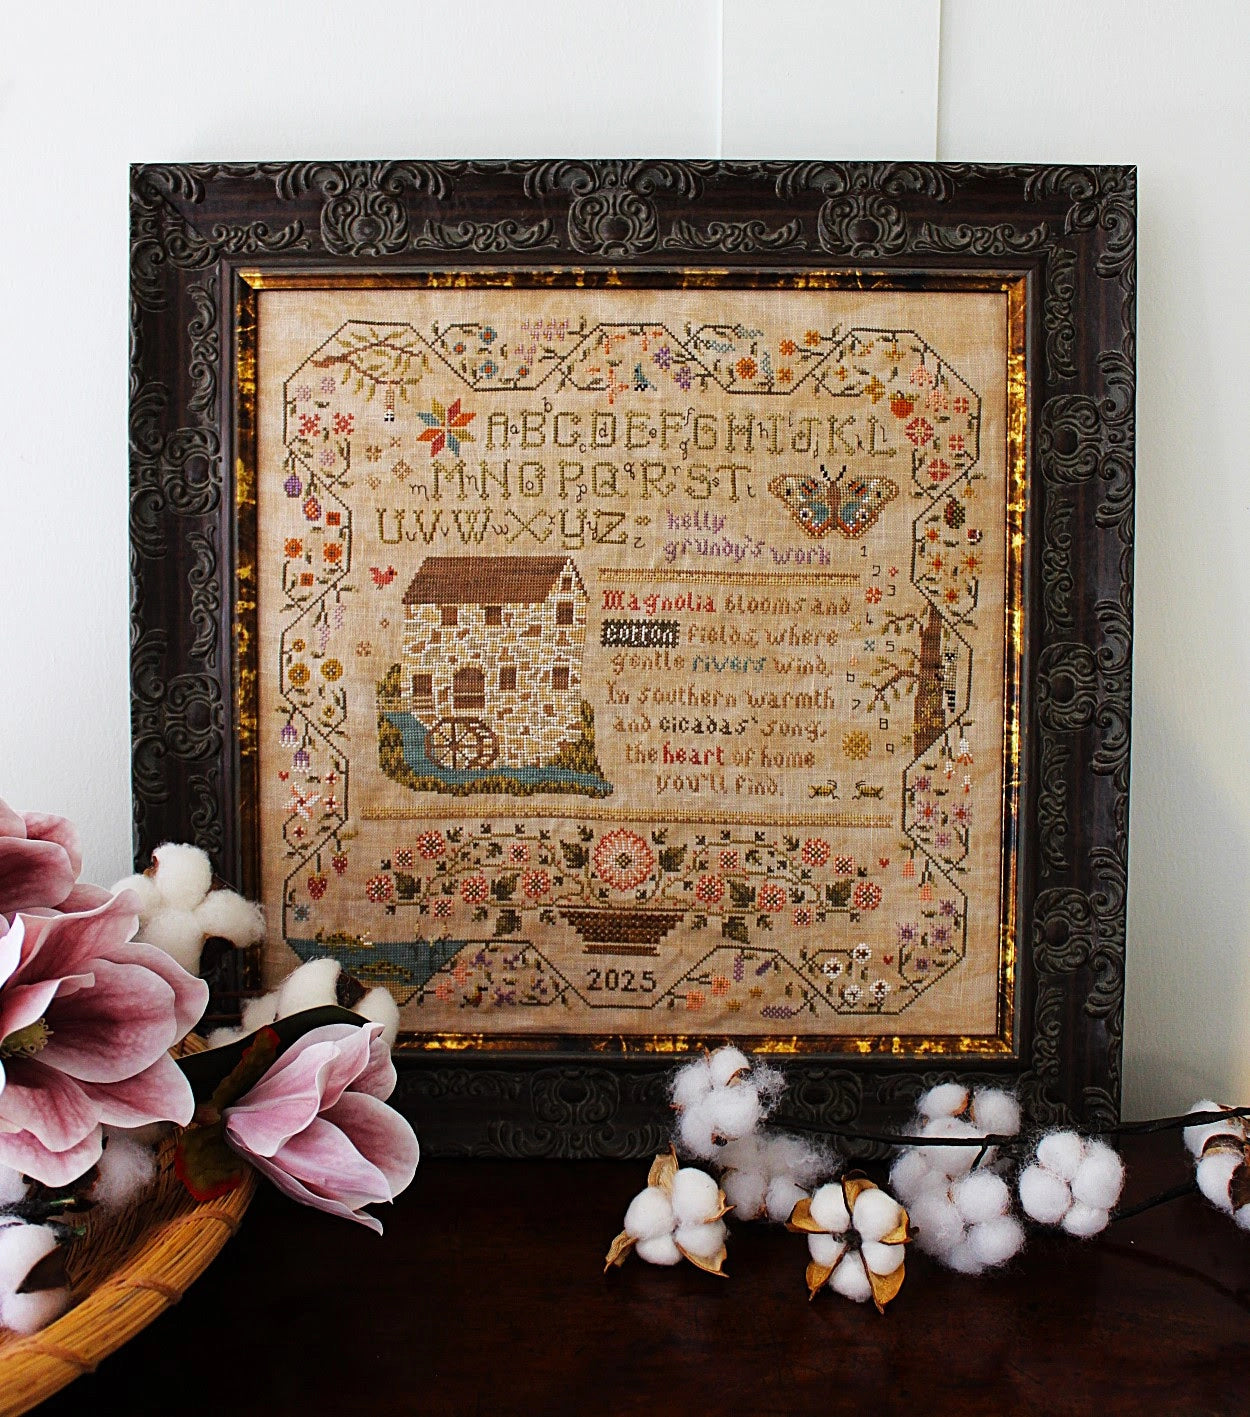 ABCDEFGHIJKL
MNOPQRST
UVWXYZ
kelly
grundy's work
1
2
3
4
5
6
7
8
9
Magnolia blooms and
cotton fields, where
gentle rivers wind,
In southern warmth
and cicadas' song,
the heart of home
you'll find.
2025